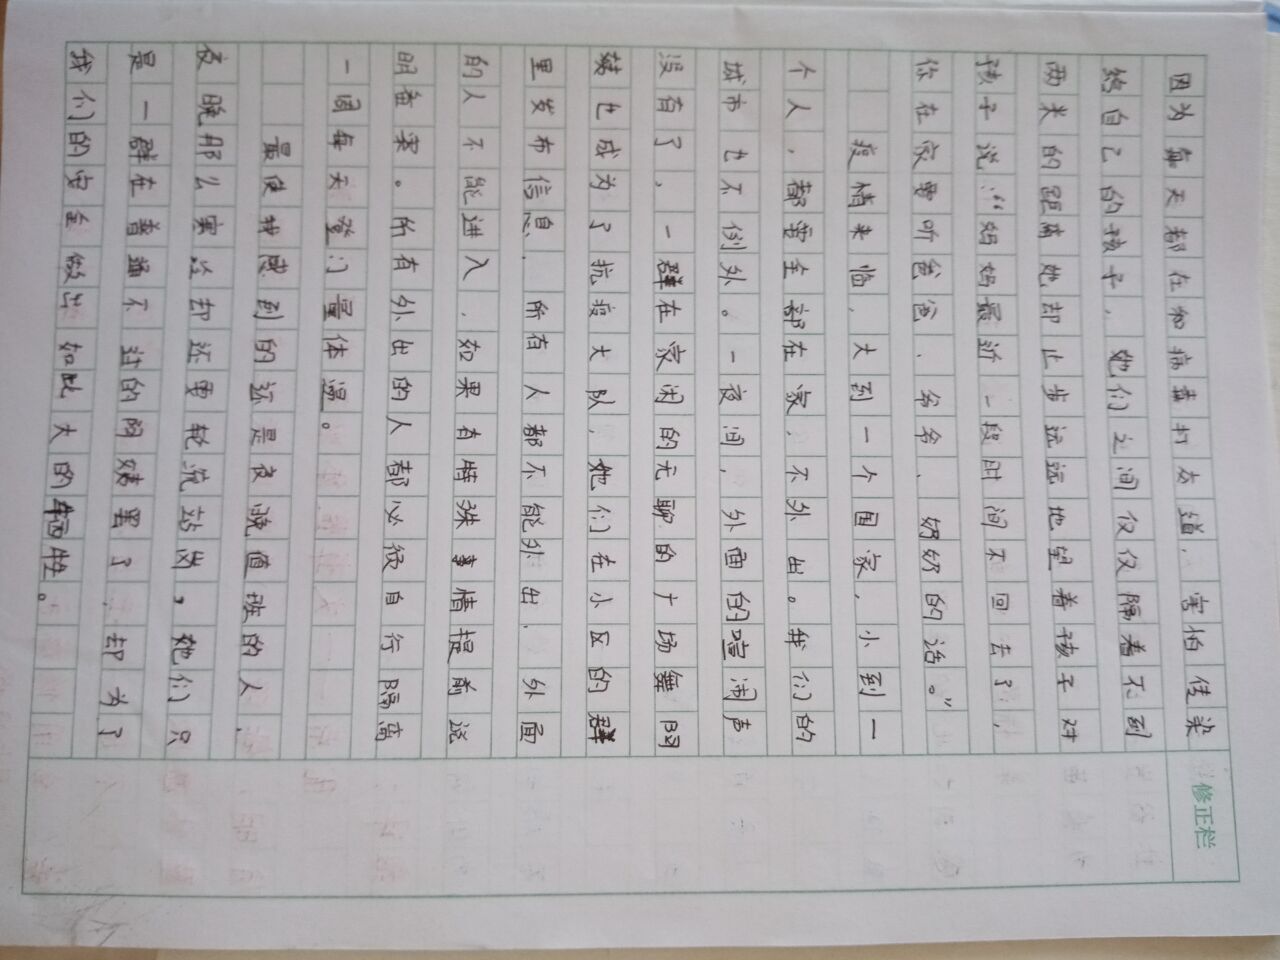 因为每天都在和病毒打交道，害怕传染
给自己的孩子，她们之间仅仅隔着不到
两米的距离她却止步远远地望着孩子对
孩子说：“妈妈最近一段时间不回去了，
你在家要听爸爸、爷爷、奶奶的话。”
疫情来临，大到一个国家，小到一
个人，都要全部在家，不外出。我们的
城市也不例外。一夜间，外面的喧闹声
没有了，一群在家闲的无聊的广场舞阿
姨也成为了抗疫大队，她们在小区的群
里发布信息，所有人都不能外出，外面
的人不能进入，如果有特殊事情提前说
明备案。所有外出的人都必须自行隔离
一周每天登门量体温。
最使我感到的还是夜晚值班的人，
夜晚那么寒冷却还要轮流站岗，她们只
是一群在普通不过的阿姨罢了，却为了
我们的安全做出如此大的牺牲。
修正栏